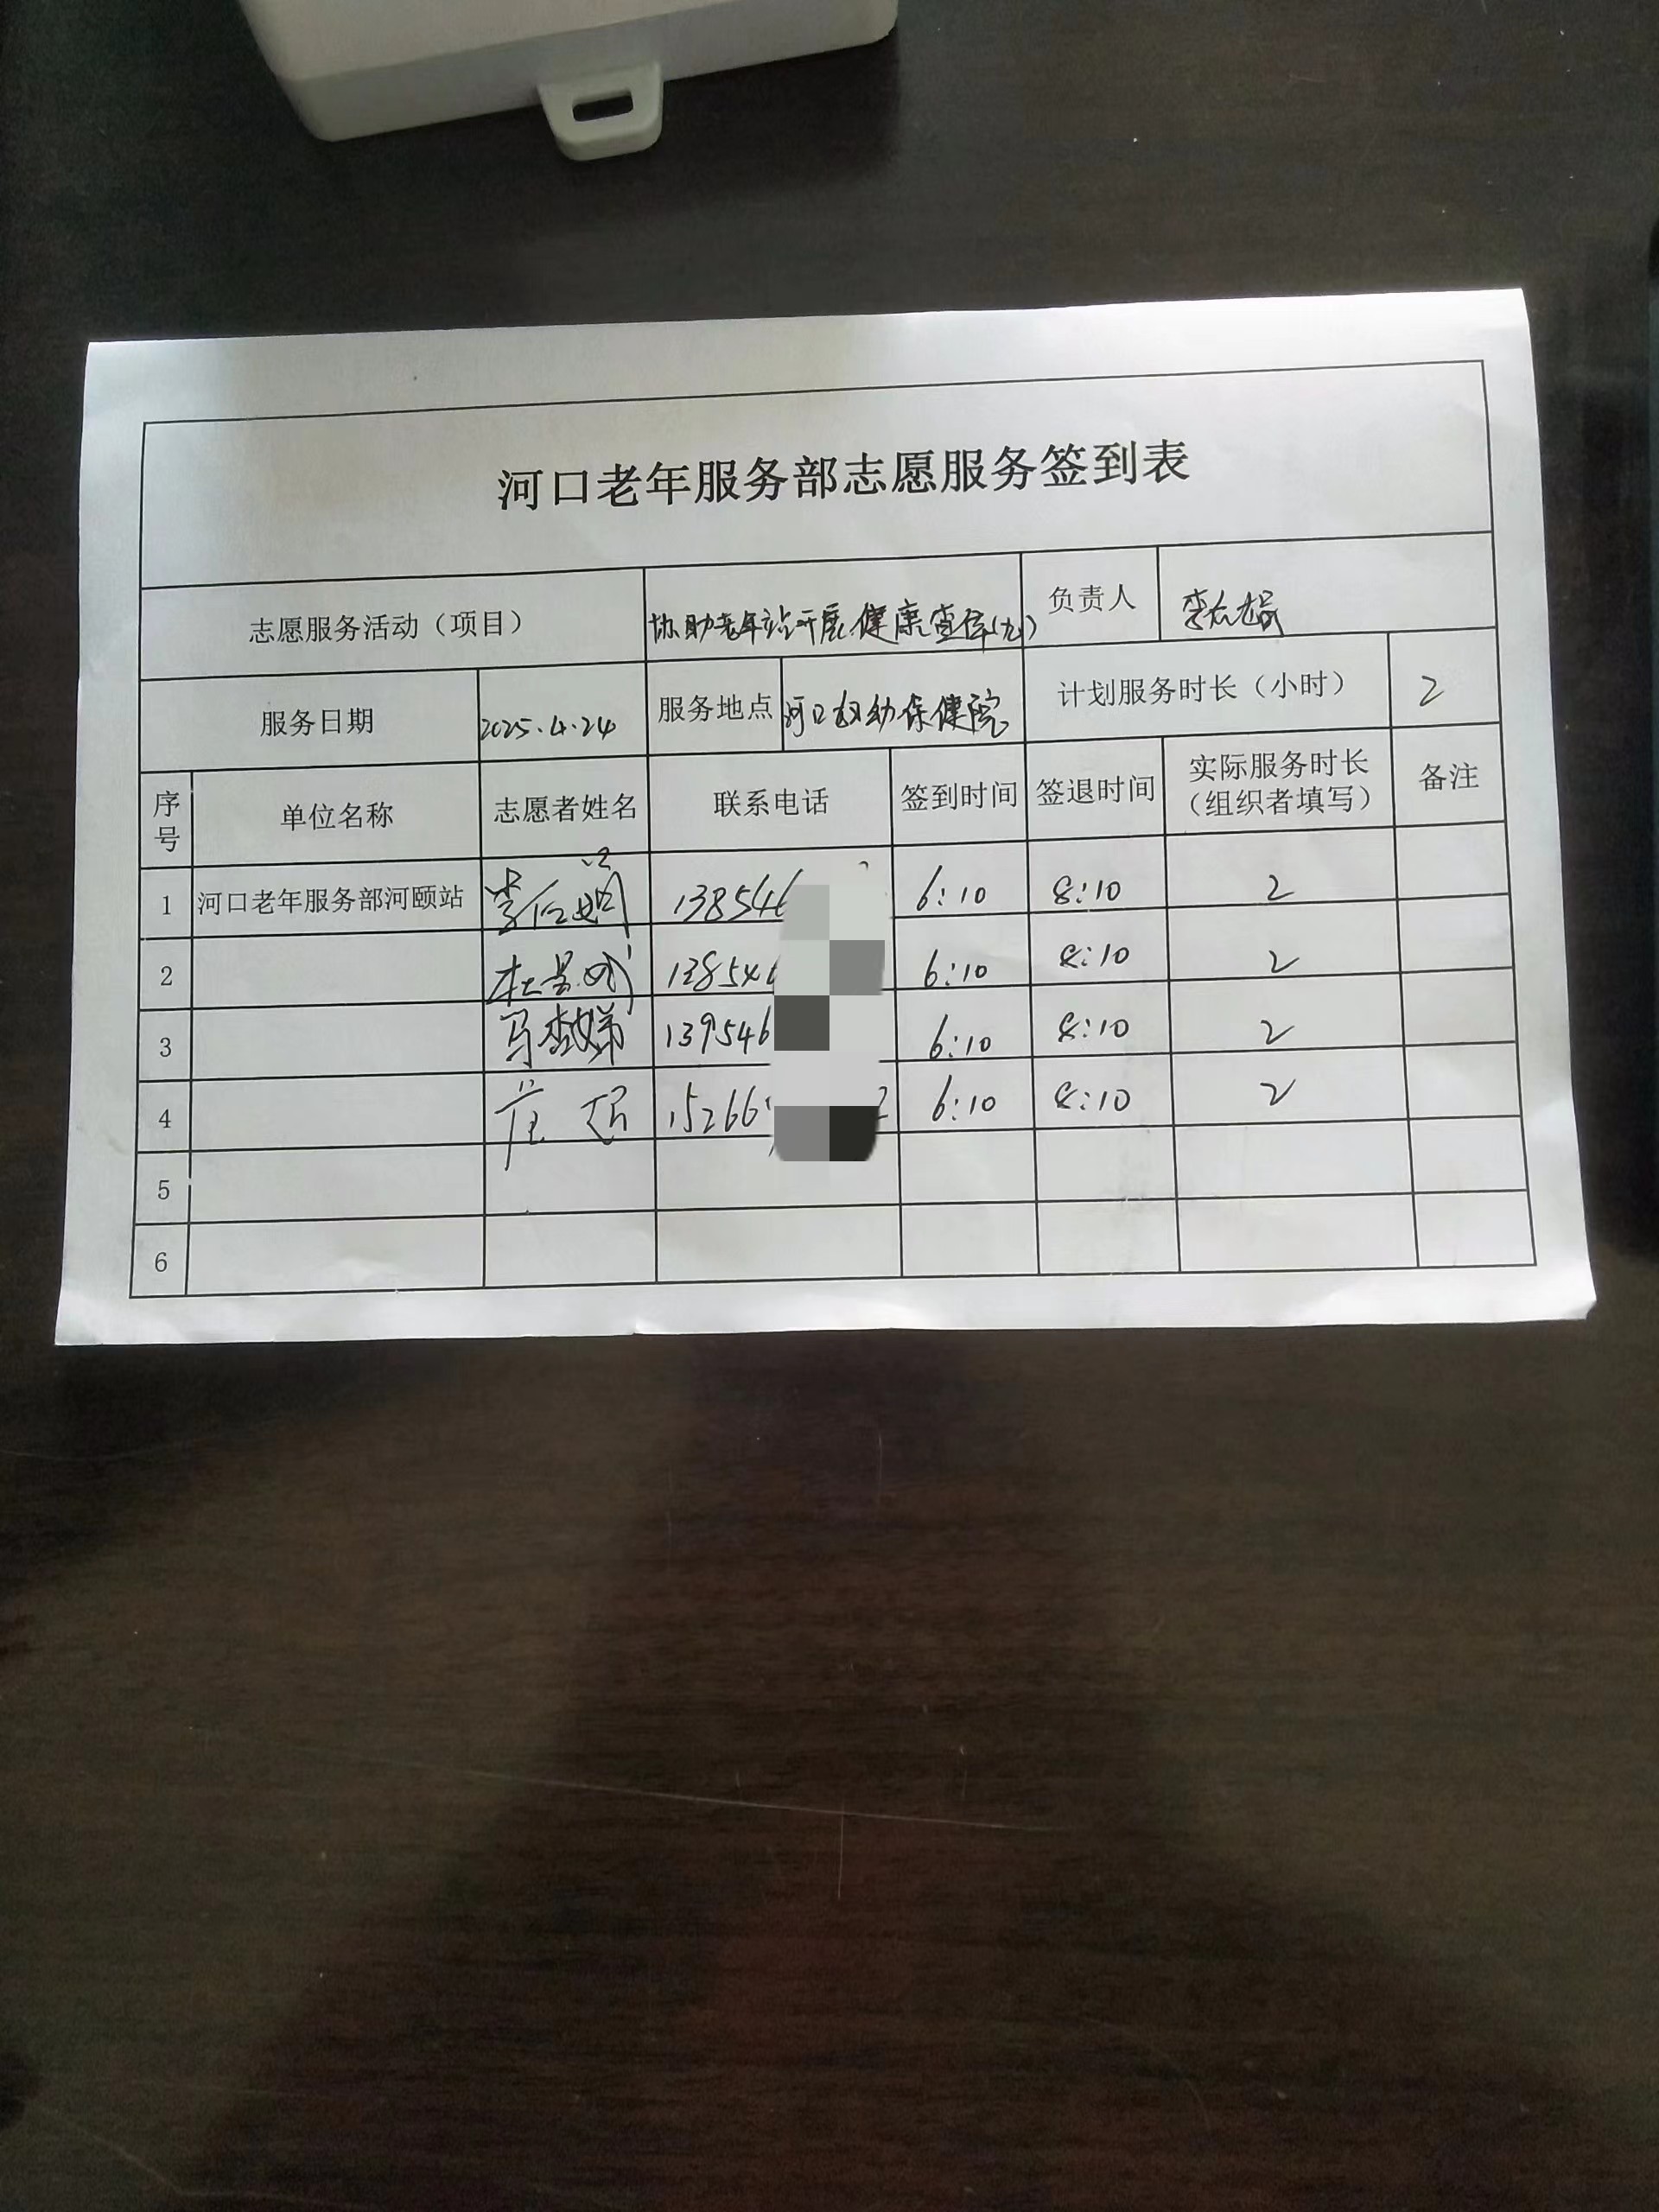 河口老年服务部志愿服务签到表
志愿服务活动（项目） 协助老年站开展健康查体(九) 负责人
服务日期 2025.4.24 服务地点 河口妇幼保健院 计划服务时长（小时） 2
序号 单位名称 志愿者姓名 联系电话 签到时间 签退时间 实际服务时长（组织者填写） 备注
1 河口老年服务部河颐站 138546 6:10 8:10 2
2 138546 6:10 8:10 2
3 139546 6:10 8:10 2
4 15266 6:10 8:10 2
5
6